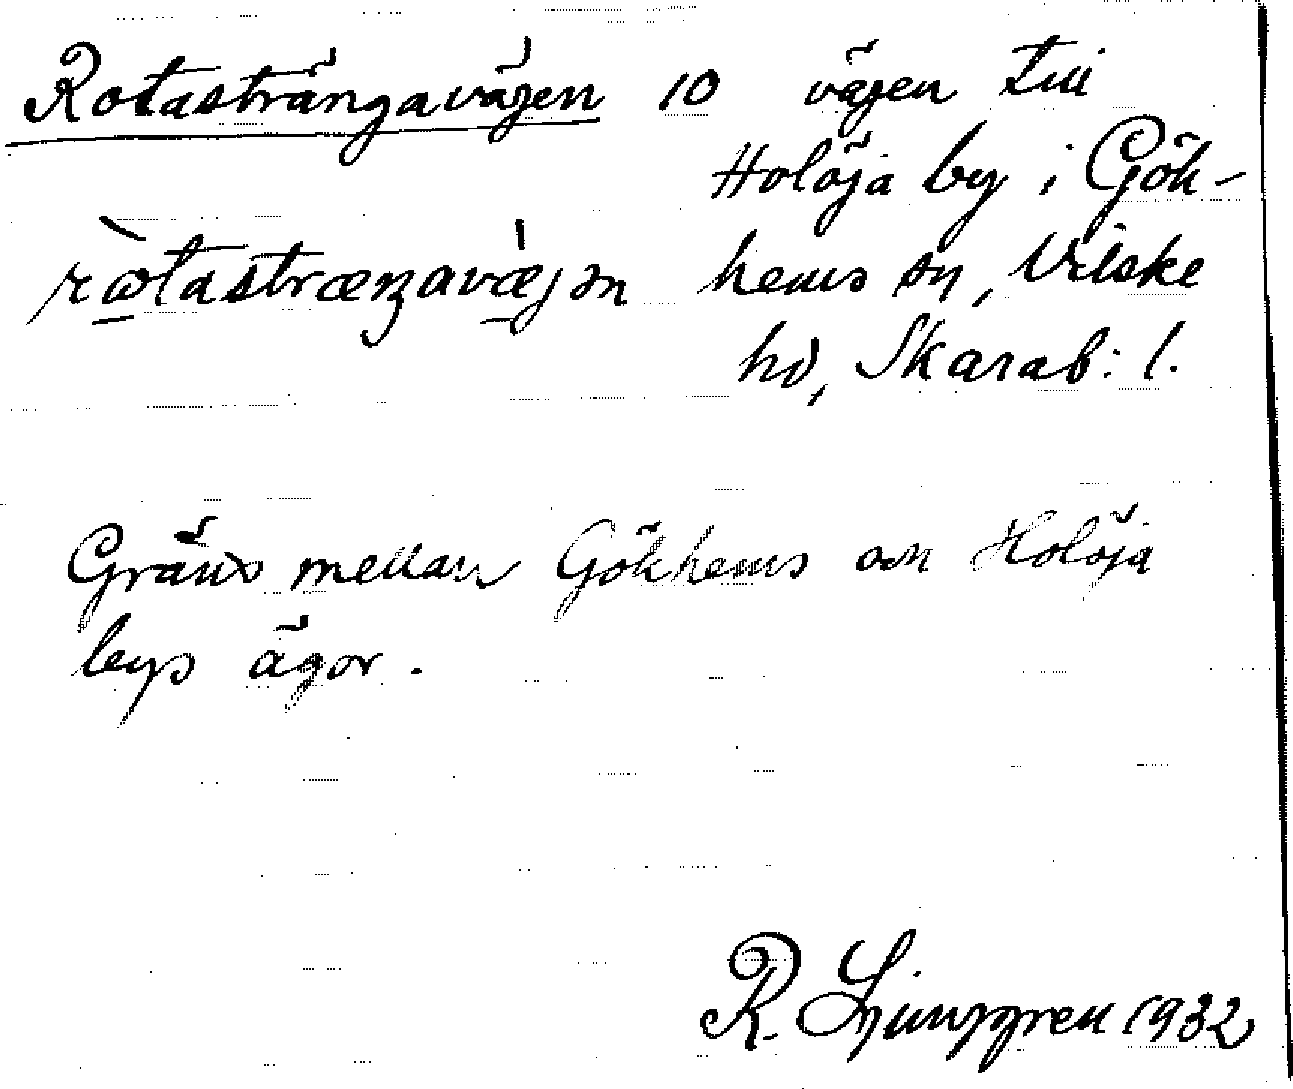 Rotasträngavägen 10 vägen till
Holöja by i Gök-
rωtastræŋavæjən hems sn, Vilske
hd, Skarab: l.
Gräns mellan Gökhems och Holöja
bys ägor.
R. Ljunggren 1932